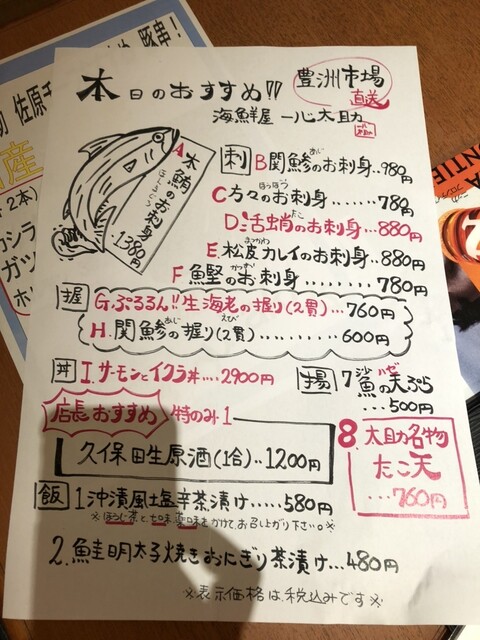 本日のおすすめ!!
豊洲市場
直送
海鮮屋 一心太助
A 本鮪のお刺身
ほんまぐろ
1380円
刺
B 関鯵のお刺身‥980円
あじ
C 方々のお刺身……780円
ほうぼう
D 活蛸のお刺身…880円
たこ
E. 松皮カレイのお刺身‥880円
まつかわ
F 魚堅のお刺身………780円
かつお
握
G.ぷるるん!!生海老の握り(2貫)…760円
えび
H.関鯵の握り(2貫)………600円
あじ
丼
I.サーモンとイクラ丼…2900円
揚
7 鯊の天ぷら
ハゼ
…500円
店長おすすめ
特のみ1
久保田生原酒(1合)‥1200円
8. 太助名物
たこ天
…760円
飯
1 沖漬風塩辛茶漬け……580円
※ほうじ茶と七味薬味をかけて、お召し上がり下さい。※
2. 鮭明太子焼きおにぎり茶漬け…480円
※表示価格は、税込みです※
豚串!
佐原
産
2本)
カシラ
ガツ
ホ